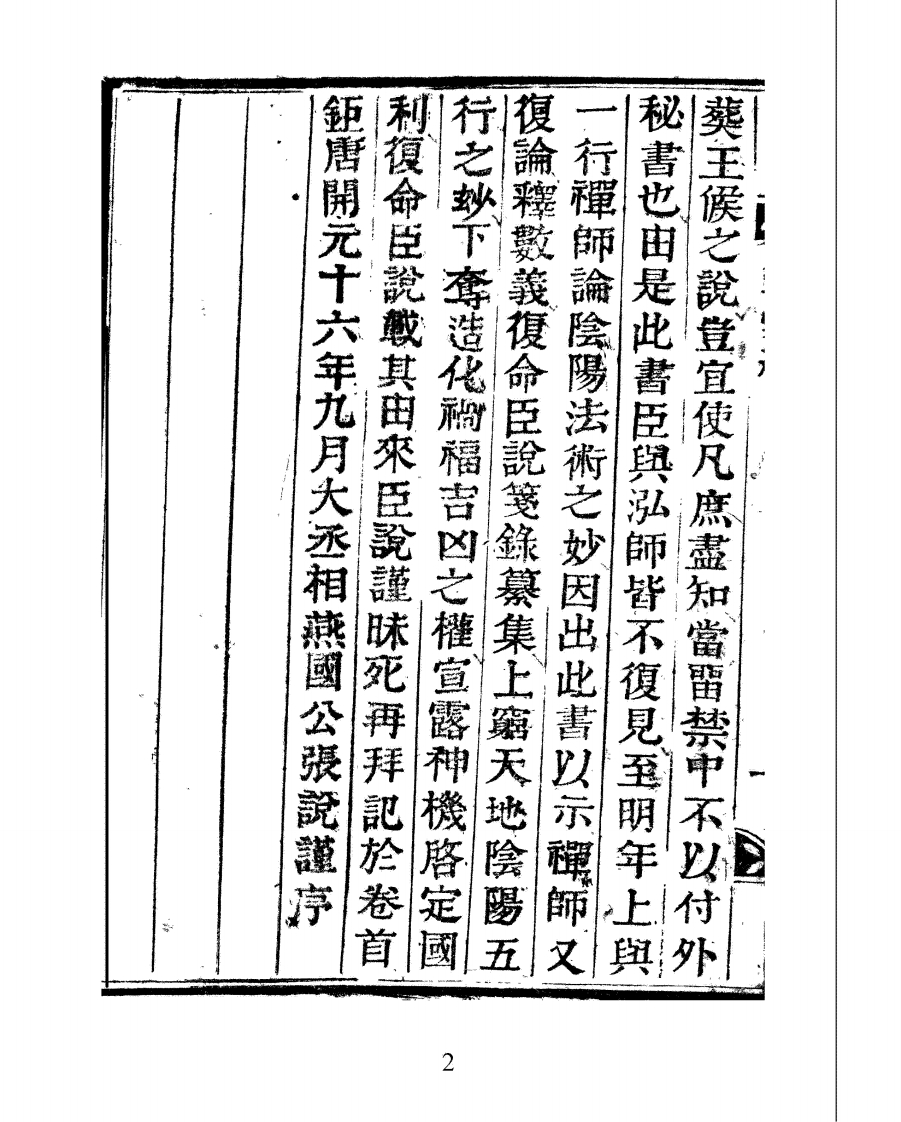 葬王侯之說豈宜使凡庶盡知當畱禁中不以付外
秘書也由是此書臣與泓師皆不復見至明年上與
一行禪師論陰陽法術之妙因出此書以示禪師又
復論釋數義復命臣說箋錄纂集上窮天地陰陽五
行之玅下奪造化禍福吉凶之權宣露神機啓定國
利復命臣說載其由來臣說謹昧死再拜記於卷首
鉅唐開元十六年九月大丞相燕國公張說謹序
2